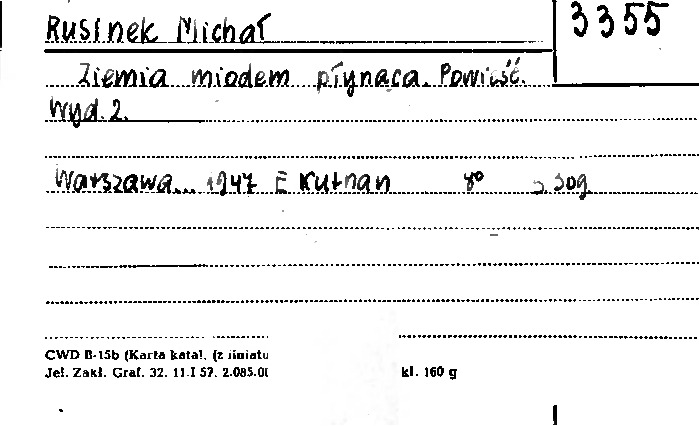 Rusinek Michał
3355
Ziemia miodem płynąca. Powieść.
Wyd. 2.
Warszawa... 1947 E Kuthan 8° s. 309
CWD B-15b (Karta katal. (z liniatu
Jel. Zakł. Graf. 32. 11.I 57. 2.085.00 kl. 160 g